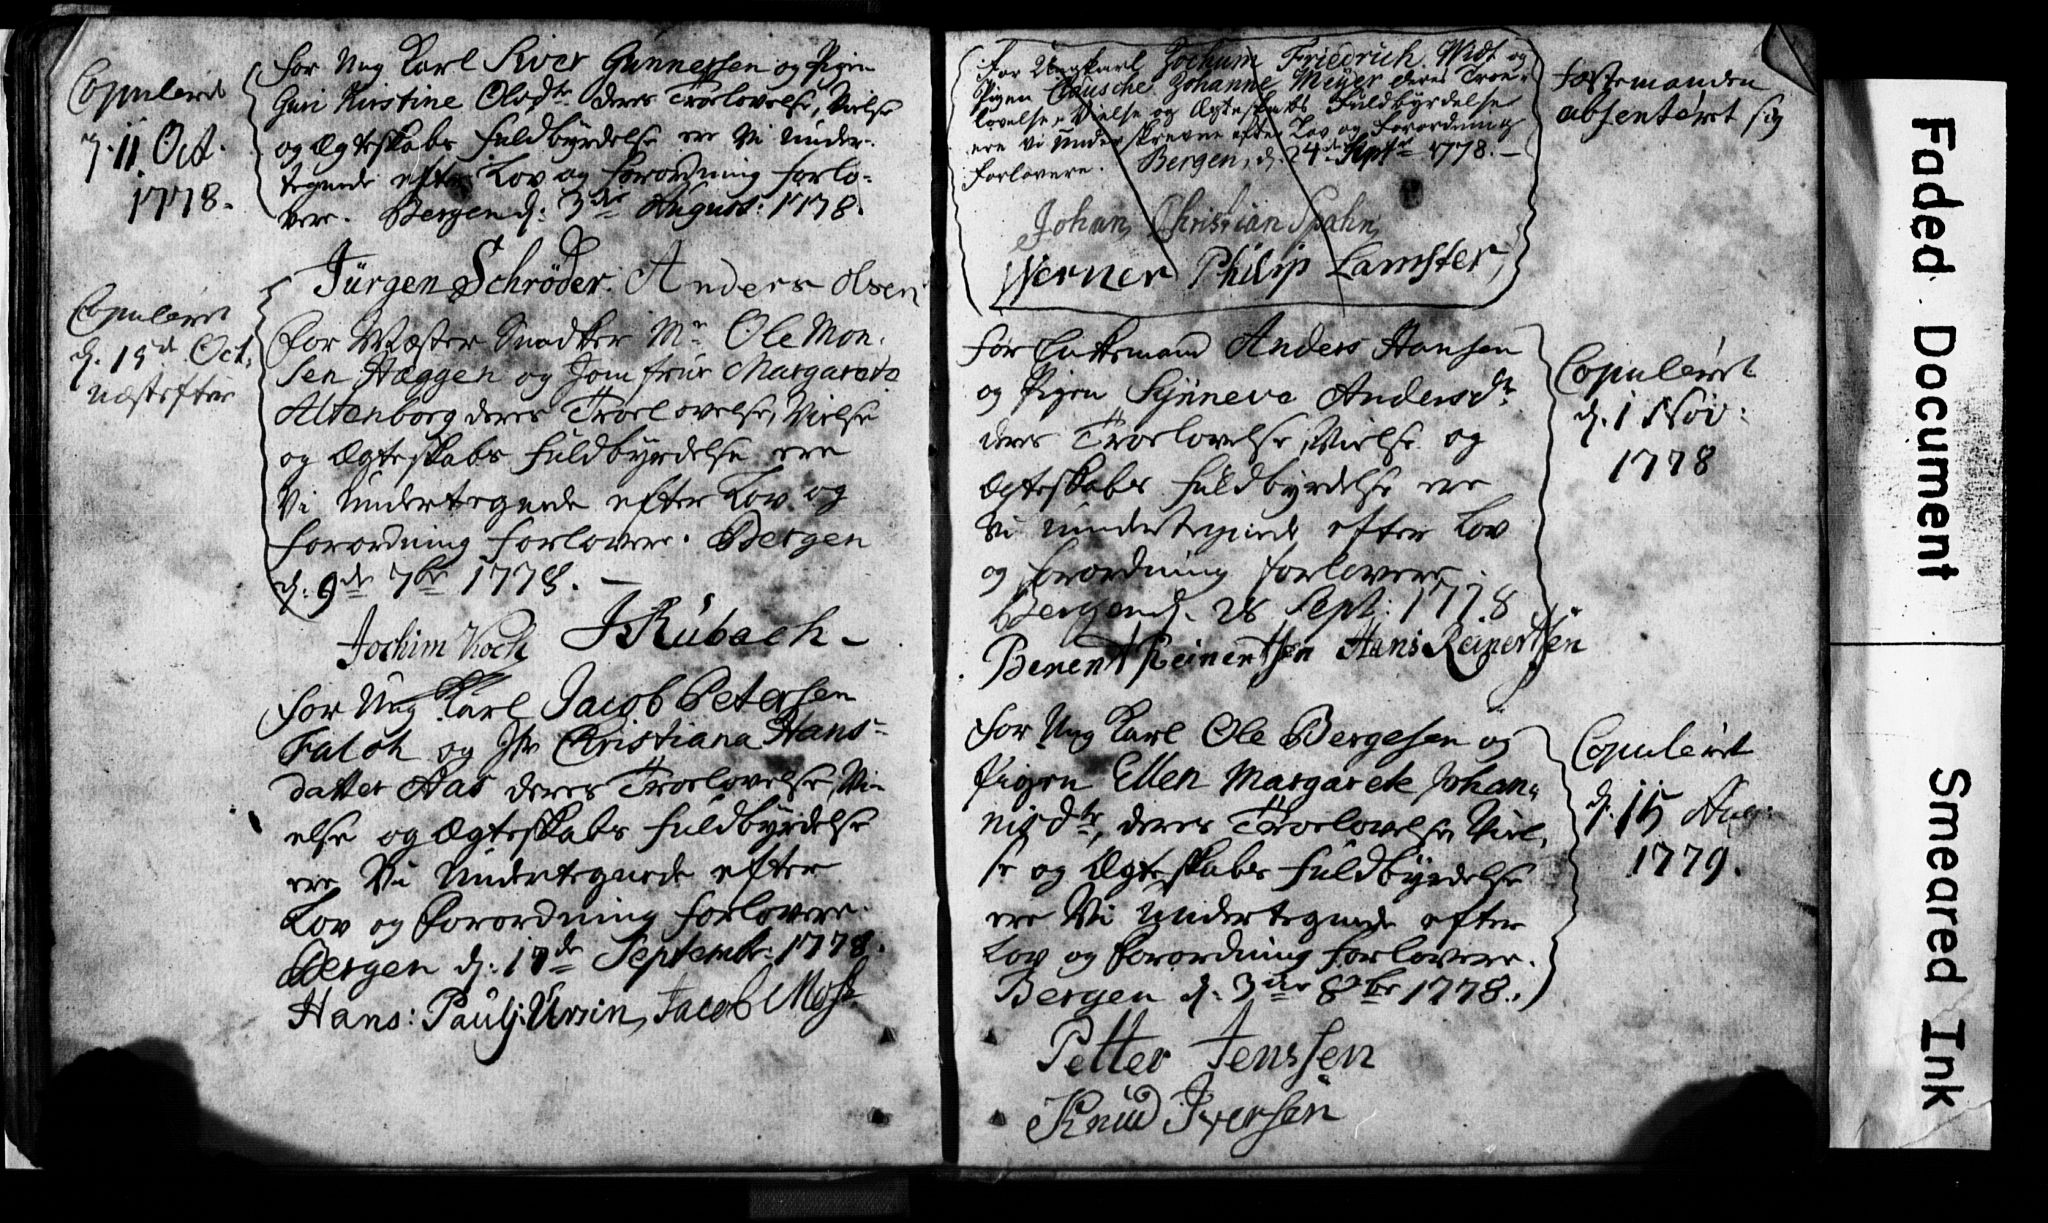 Copuleret
d. 11 Oct.
1778.
For Ung Karl Siver Gunnersen og Pigen
Guri Kirstine Olsdtr deres Troelovelse, Vielse
og Ægteskabs Fuldbyrdelse ere Vi under-
tegnede efter Lov og Forordning forlo-
vere. Bergen d: 3die August: 1778.
Jürgen Schröder. Anders Olsen
Copuleret
d. 15de Oct.
næstefter
For Mæster Snedker Mr. Ole Mon-
sen Hæggen og Jomfrue Margareta
Altenborg deres Troelovelse, Vielse
og Ægteskabs Fuldbyrdelse ere
Vi Undertegnede efter Lov og
Forordning Forlovere. Bergen
d: 9de 7br 1778. —
Jochim Koch JRübach -
For Ung Karl Jacob Petersen
Falch og Jfr Christiana Hans-
datter Aas deres Troelovelse, Vi-
else og Ægteskabs Fuldbyrdelse
ere Vi Undertegnede efter
Lov og Forordning Forlovere.
Bergen d: 17de Septembr: 1778.
Hans: Paulj: Ursin, Jacob
For Ungkarl Jochum Friedrich Widt og
Pigen Johanne Meyer deres Troe-
lovelse, Vielse og Ægteskabs Fuldbyrdelse
ere vi Underskrevne efter Lov og Forordning
Forlovere. Bergen, d. 24de Septr 1778. —
Johan Christian Spahn
Werner Philip Lamster,
Fæstemanden
absenteret sig
For Enkemand Anders Hansen
og Pigen Synneva Andersdtr
deres Troelovelse, Vielse og
Ægteskabs Fuldbyrdelse ere
Vi undertegnede efter Lov
og Forordning Forlovere.
Bergen d. 28 Sept: 1778
Berent Reinertsen Hans Reinertsen
Copuleret
d. 1 Nov:
1778
For Ung Karl Ole Bergesen og
Pigen Ellen Margarete Johan-
nisdtr, deres Troelovelse, Viel-
se og Ægteskabs Fuldbyrdelse
ere Vi Undertegnede efter
Lov og Forordning Forlovere.
Bergen d: 3die 8br 1778.
Petter Jenssen
Knud Iversen
Copuleret
d. 15 Aug:
1779.
Faded Document
Smeared Ink